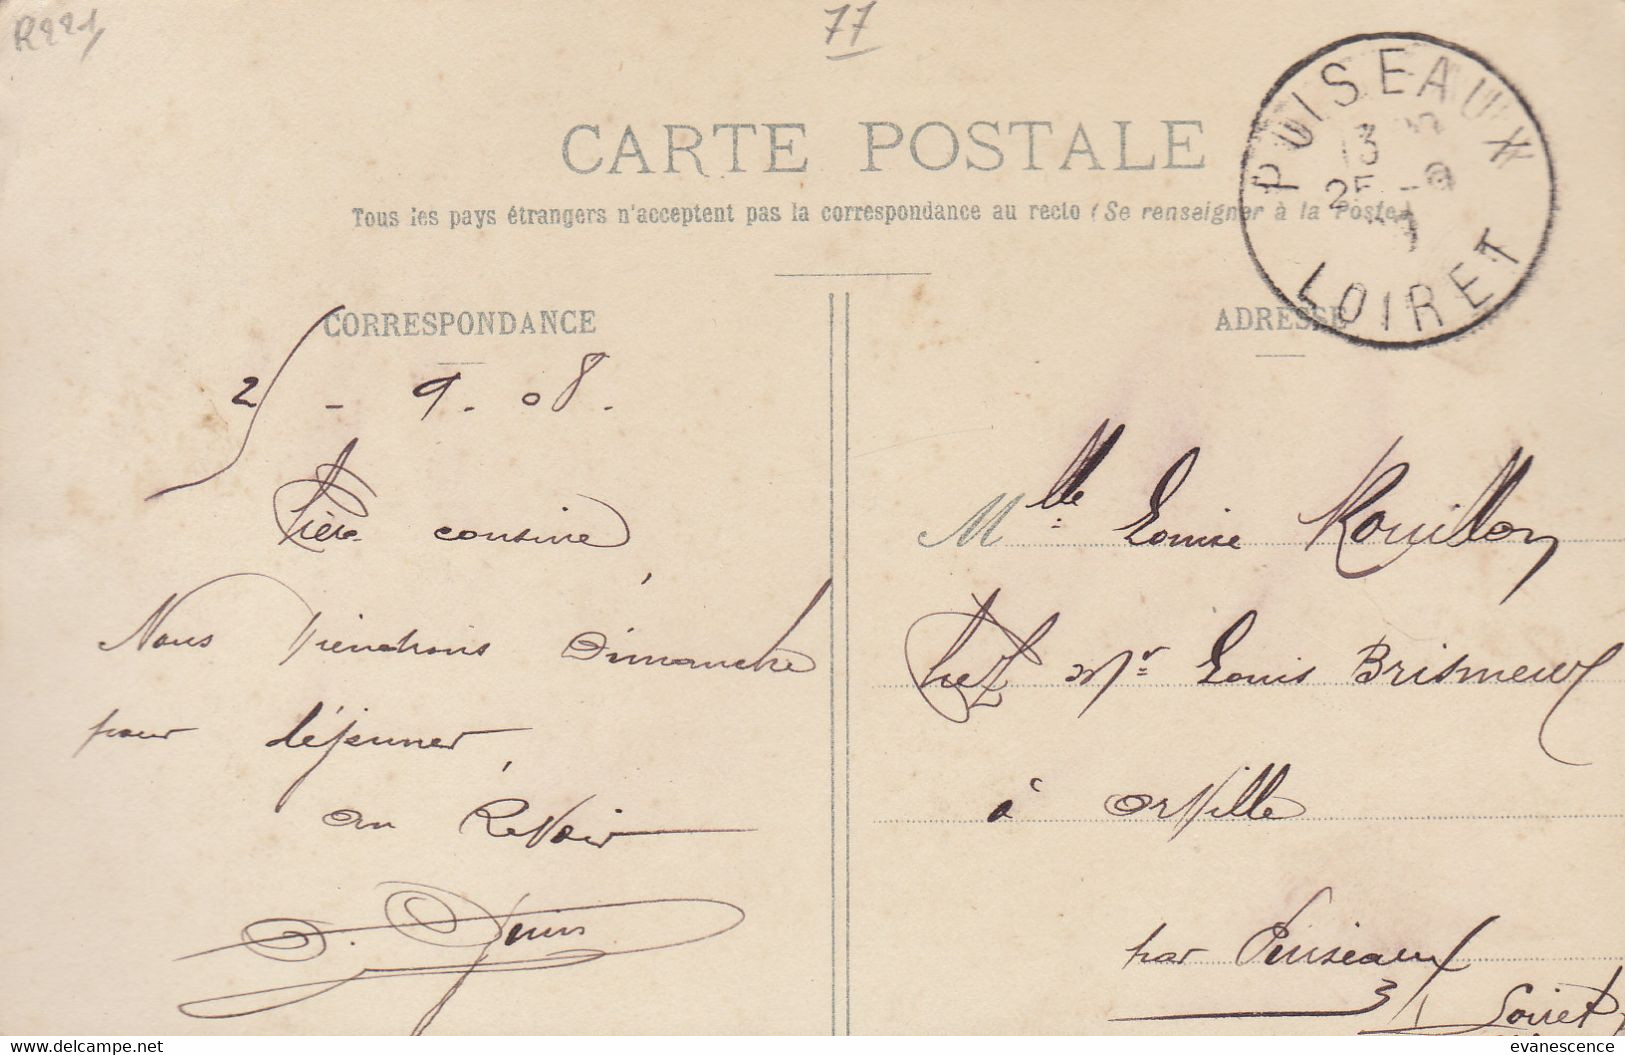 R221
77
CARTE POSTALE
Tous les pays étrangers n'acceptent pas la correspondance au recto (Se renseigner à la Poste)
PUISEAUX
13
25 - 9
LOIRET
CORRESPONDANCE
25 - 9 - 08.
Chère cousine,
Nous viendrons Dimanche
pour déjeuner,
au Revoir
Denis
ADRESSE
Mlle Louise Rouillon
chez Mr Louis Brismeur
à Orville
par Puiseaux
Loiret
www.delcampe.net
evanescence